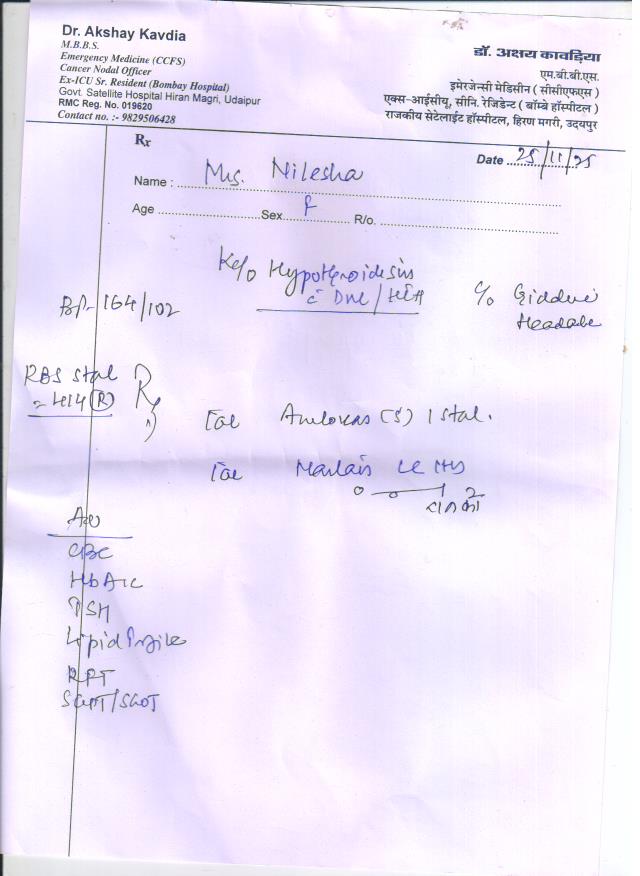 Dr. Akshay Kavdia
M.B.B.S.
Emergency Medicine (CCFS)
Cancer Nodal Officer
Ex-ICU Sr. Resident (Bombay Hospital)
Govt. Satellite Hospital Hiran Magri, Udaipur
RMC Reg. No. 019620
Contact no. :- 9829506428
डॉ. अक्षय कावड़िया
एम.बी.बी.एस.
इमरजेन्सी मेडिसीन ( सीसीएफएस )
एक्स-आईसीयू, सीनि. रेजिडेन्ट ( बॉम्बे हॉस्पीटल )
राजकीय सेटेलाईट हॉस्पीटल, हिरण मगरी, उदयपुर
Rx
Date 25/11/25
Name : Mrs. Nilesha
Age Sex F R/o.
K/c/o Hypothyroidesius
c̄ DM / HTN
C/o Giddine
Headache
BP- 164/102
RBS stat
= 414 (R)
Rx
1)
Tab Amlokas (5) 1 stat.
Tab HS
0 — 0 — 1
Adv
CBC
HbA1c
TSH
Lipid Profile
RFT
SGPT/SGOT